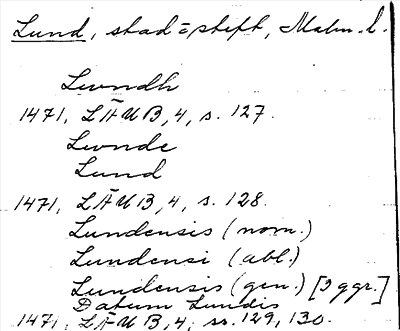 Lund, stad = stift, Malm. l.
Lwndh
1471, LÄUB, 4, s. 127.
Lwnde
Lund
1471, LÄUB, 4, s. 128.
Lundensis (nom.)
Lundensi (abl.)
Lundensis (gen.) [3 ggr.]
Datum Lundis
1471, LÄUB, 4, ss. 129, 130.